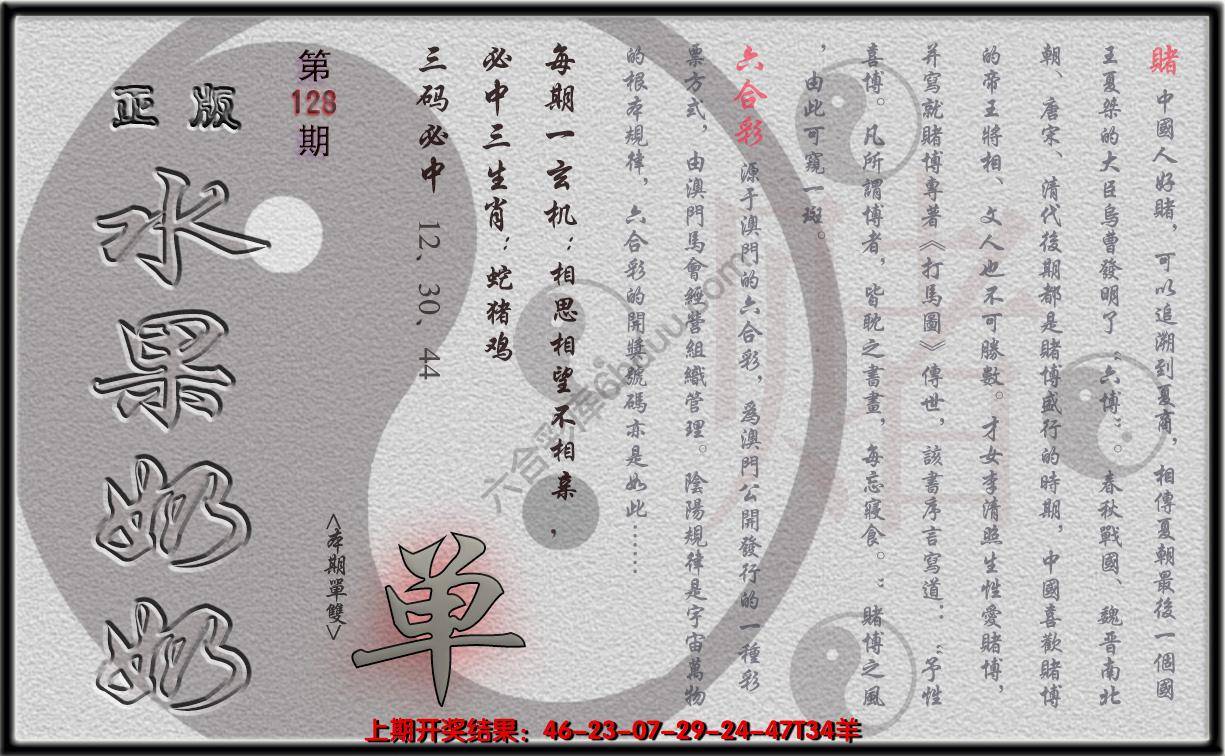 賭 中國人好賭，可以追溯到夏商，相傳夏朝最後一個國
王夏桀的大臣烏曹發明了“六博”。春秋戰國、魏晉南北
朝、唐宋、清代後期都是賭博盛行的時期，中國喜歡賭博
的帝王將相、文人也不可勝數。才女李清照生性愛賭博，
并寫就賭博專著《打馬圖》傳世，該書序言寫道：“予性
喜博。凡所謂博者，皆耽之晝畫，每忘寢食。”賭博之風
，由此可窺一斑。
六合彩 源于澳門的六合彩，爲澳門公開發行的一種彩
票方式，由澳門馬會經營組織管理。陰陽規律是宇宙萬物
的根本規律，六合彩的開獎號碼亦是如此……
每期一玄机：相思相望不相亲，
必中三生肖：蛇猪鸡
三码必中 12、30、44
第
128
期
正版
水果奶奶
<本期單雙>
单
六合彩库6huuu.com
上期开奖结果：46-23-07-29-24-47T34羊